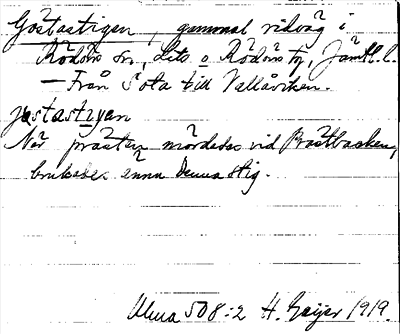 Göstastigen, gammal ridväg i
Rödöns sn., Lits o Rödöns tg, Jämtl. l.
— Från Göta till Vallåviken.
jøstastiyan
När prästen mördades vid Prästbacken,
brukades ännu denna stig.
Ulma 508:2 H. Geijer 1919.